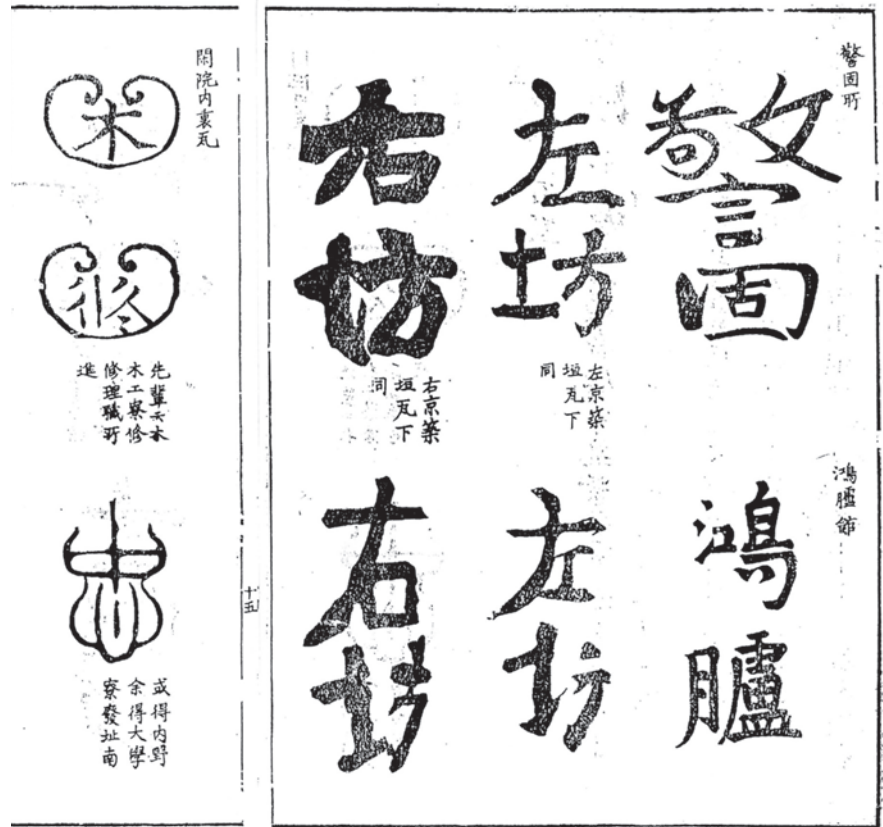 警固所
警固
鴻臚館
鴻臚
左坊
左京築
垣瓦下
同
左坊
右坊
右京築
垣瓦下
同
右坊
十五
閑院内裏瓦
木
修
先輩云木
木工寮修
修理職所
進
或得内野
余得大學
寮發址南